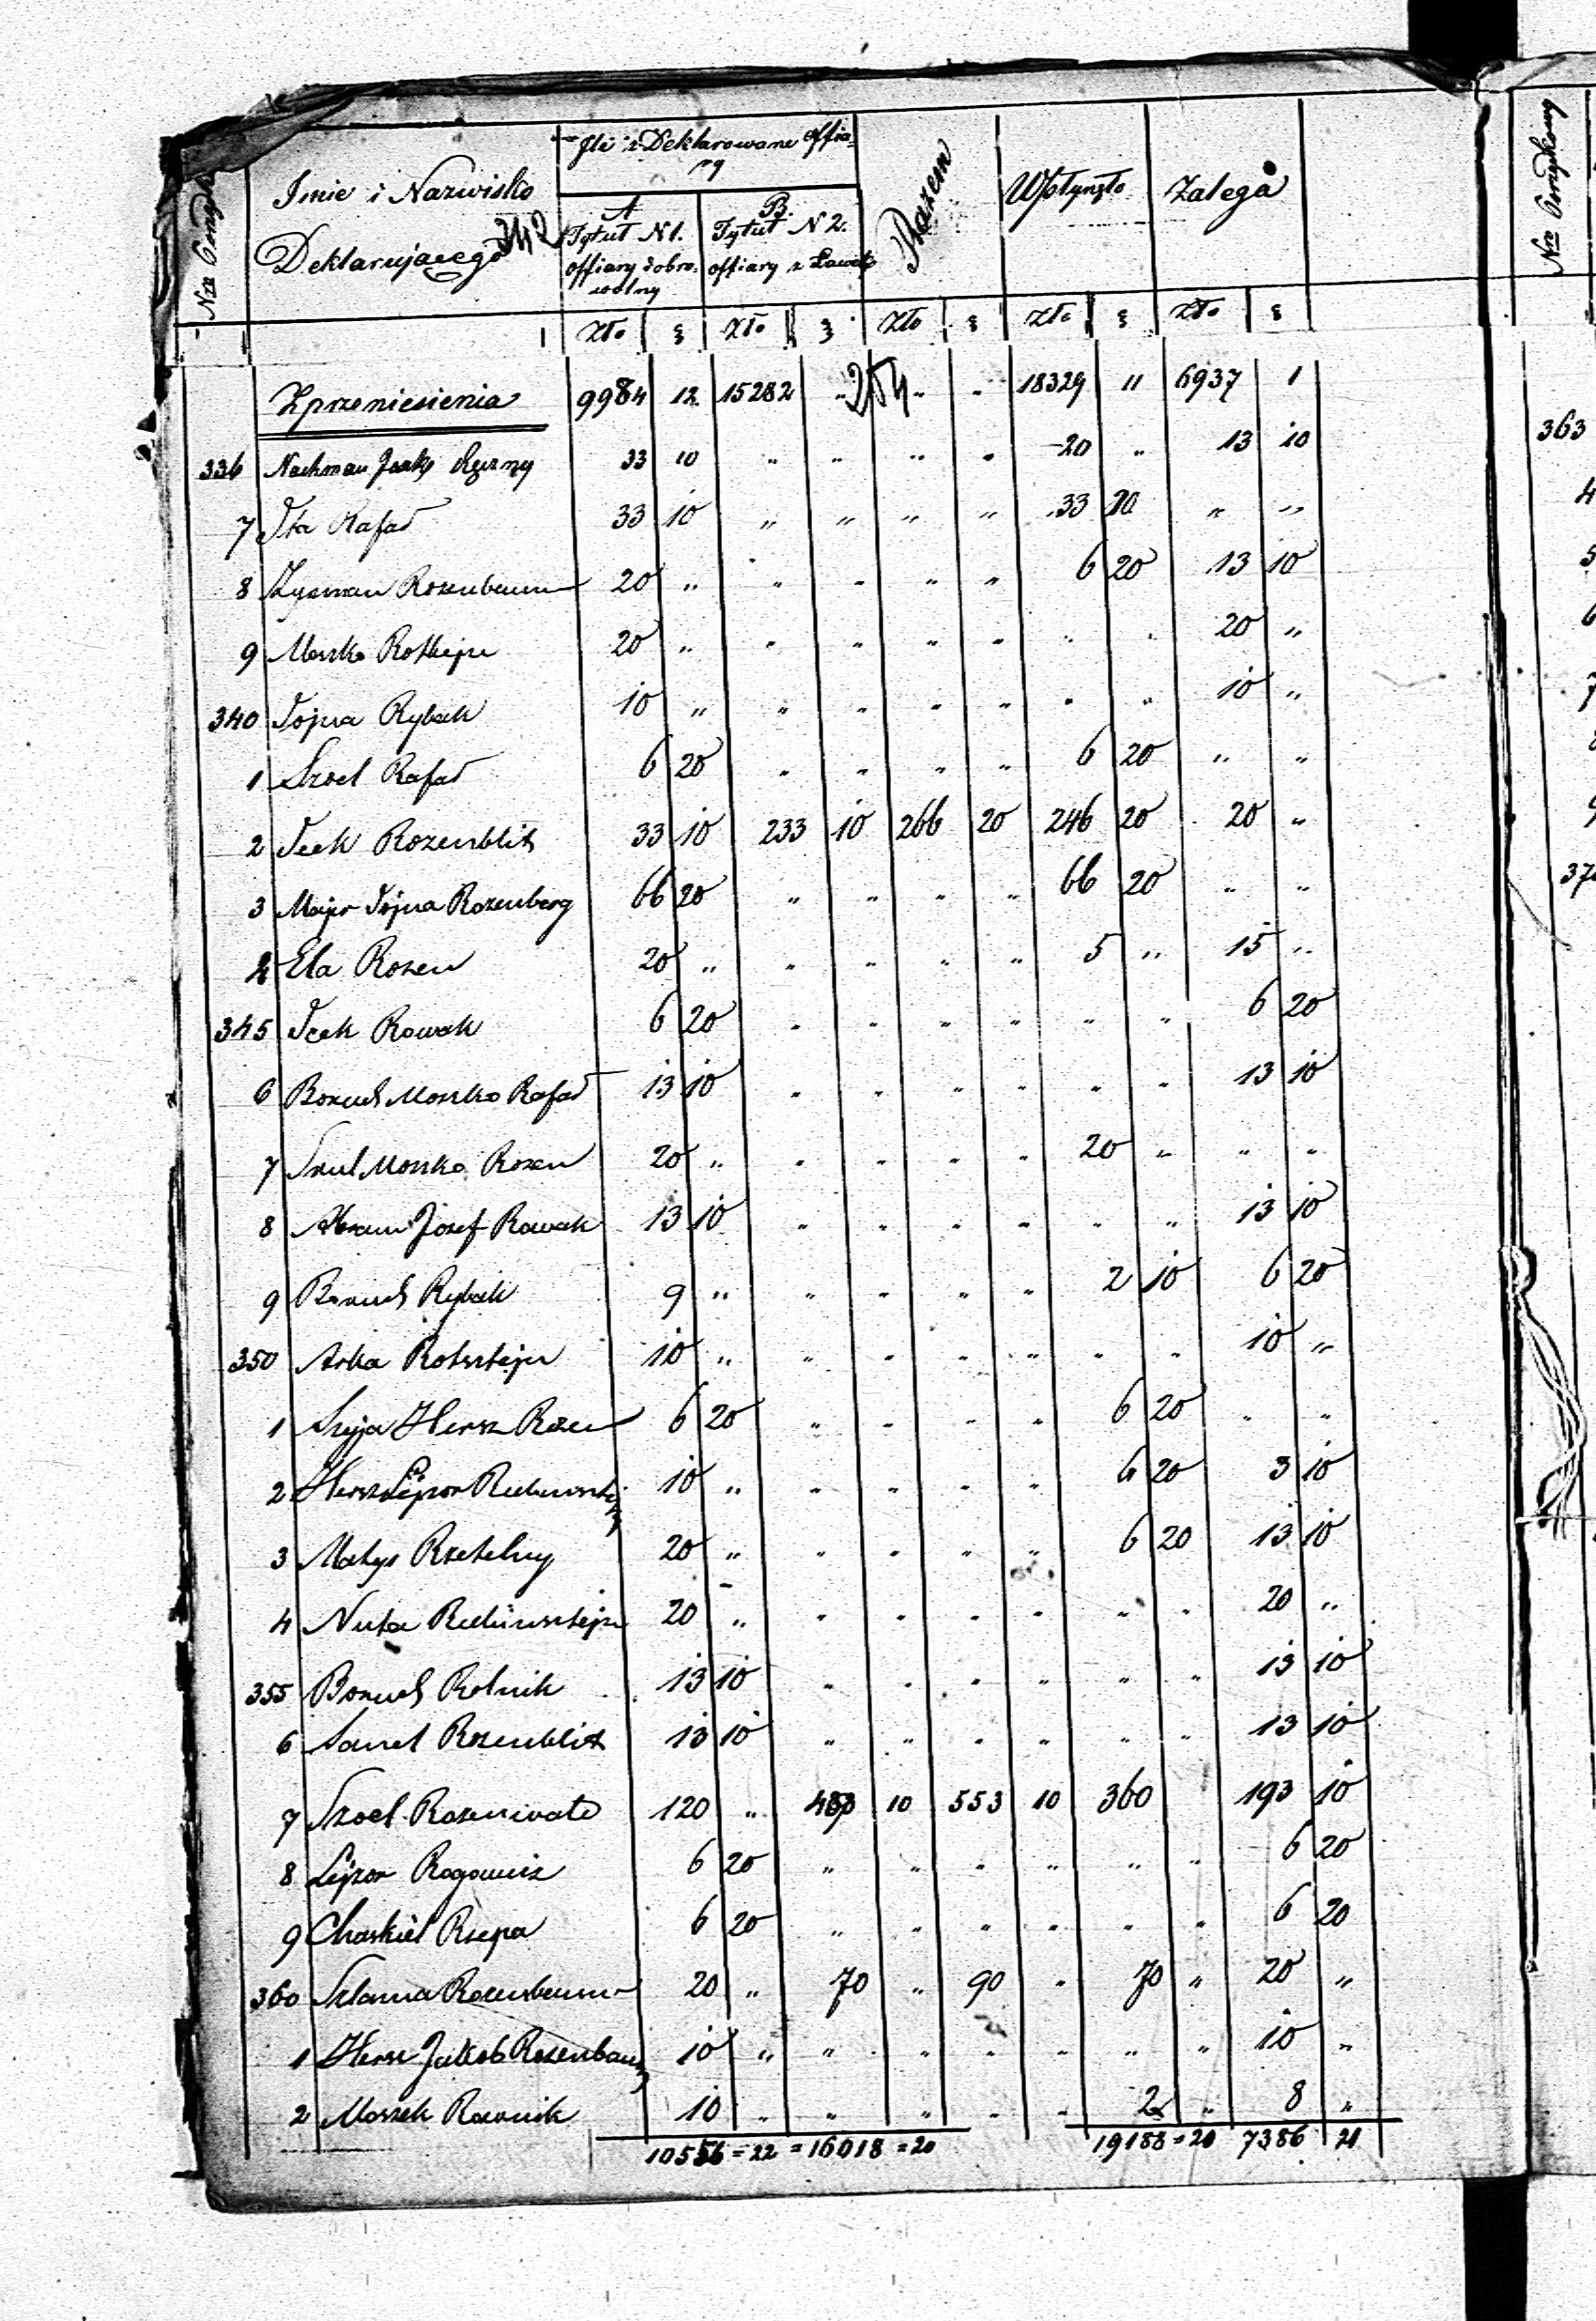 Nro Porządk
Imie i Nazwisko
Deklarującego
342
Ile zDeklarowane offia-
ry
A
Tytuł N 1.
offiary dobro-
wolny
B.
Tytuł N 2.
offiary z Ławek
Razem
Wpłynęło
Zalega
Nro Porządkowy
Złp Złp Złp Złp Złp
Zprzeniesienia 9984 12 15282 „ 254 „ „ 18329 11 6937 1
336 Nachman „ 33 10 „ „ „ „ 20 „ 13 10
7 Ita Rafał 33 10 „ „ „ „ 33 10 „ „
8 Zysman Rozenbaum 20 „ „ „ „ „ 6 20 13 10
9 Moszko 20 „ „ „ „ „ „ „ 20 „
340 Tojna Rybak 10 „ „ „ „ „ „ „ 10 „
1 Szoel Rafał 6 20 „ „ „ „ 6 20 „ „
2 Icek Rozenblit 33 10 233 10 266 20 246 20 20 „
3 Majer Tojna Rozenberg 66 20 „ „ „ „ 66 20 „ „
4 Ela Rozen 20 „ „ „ „ „ 5 „ 15 „
345 Icek Rowak 6 20 „ „ „ „ „ „ 6 20
6 Boruch Moszko Rafał 13 10 „ „ „ „ „ „ 13 10
7 Szul Moszko Rozen 20 „ „ „ „ „ 20 „ „ „
8 Abram Josef Rowak 13 10 „ „ „ „ „ „ 13 10
9 Boruch Rybak 9 „ „ „ „ „ 2 10 6 20
350 Arka Rotsztejn 10 „ „ „ „ „ „ „ 10 „
1 Szyja Hersz Rozen 6 20 „ „ „ „ 6 20 „ „
2 Hersz Lejzor 10 „ „ „ „ „ 6 20 3 10
3 Matys Rzetelny 20 „ „ „ „ „ 6 20 13 10
4 Nuta Rubinsztejn 20 „ „ „ „ „ „ „ 20 „
355 Boruch Rolnik 13 10 „ „ „ „ „ „ 13 10
6 Rozenblit 13 10 „ „ „ „ „ „ 13 10
7 Szoel 120 „ 433 10 553 10 360 193 10
8 Lejzor Rogowicz 6 20 „ „ „ „ „ „ 6 20
9 Chaskiel Rzepa 6 20 „ „ „ „ „ „ 6 20
360 Szlama Rozenbaum 20 „ 70 „ 90 „ 70 „ 20 „
1 Hersz Jakob Rozenbaum 10 „ „ „ „ „ „ „ 10 „
2 Moszek Rownik 10 „ „ „ „ „ 2 „ 8 „
10556 = 22 = 16018 = 20 19188 = 20 7386 21
363
4
5
6
7